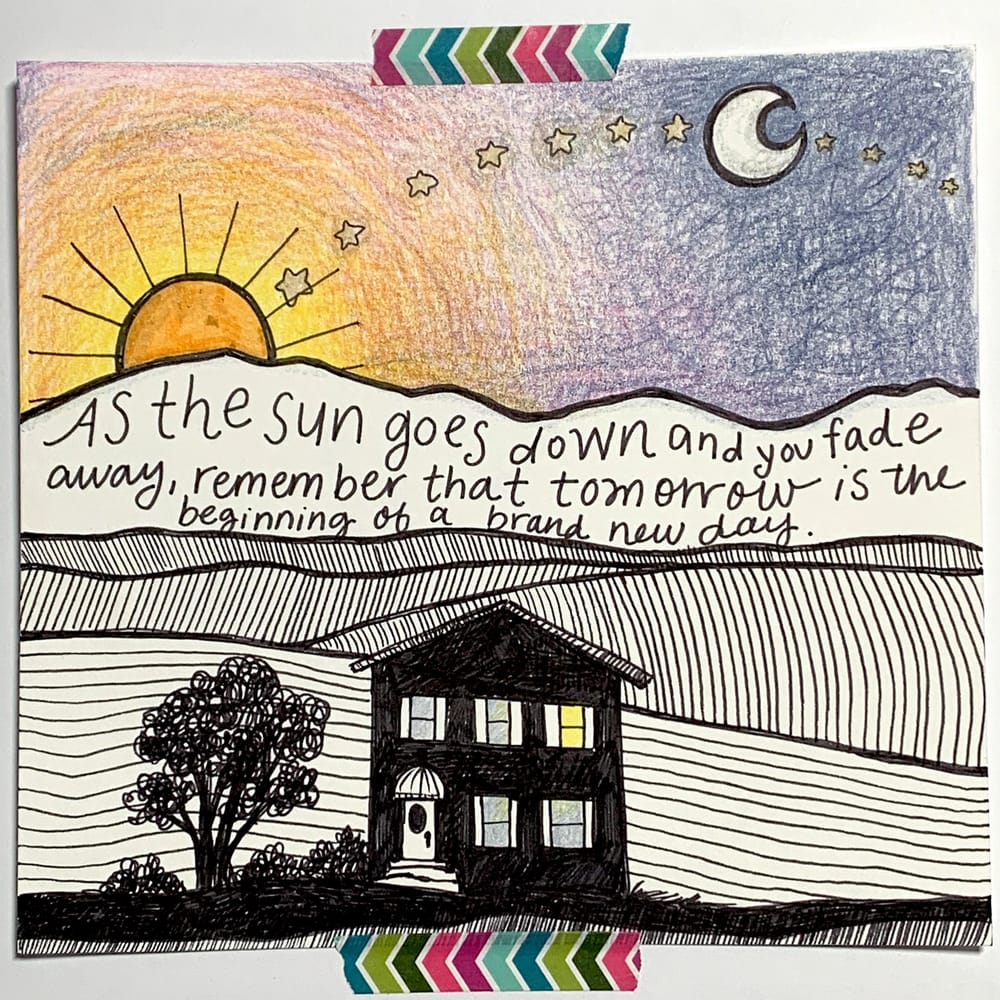 As the sun goes down and you fade
away, remember that tomorrow is the
beginning of a brand new day.